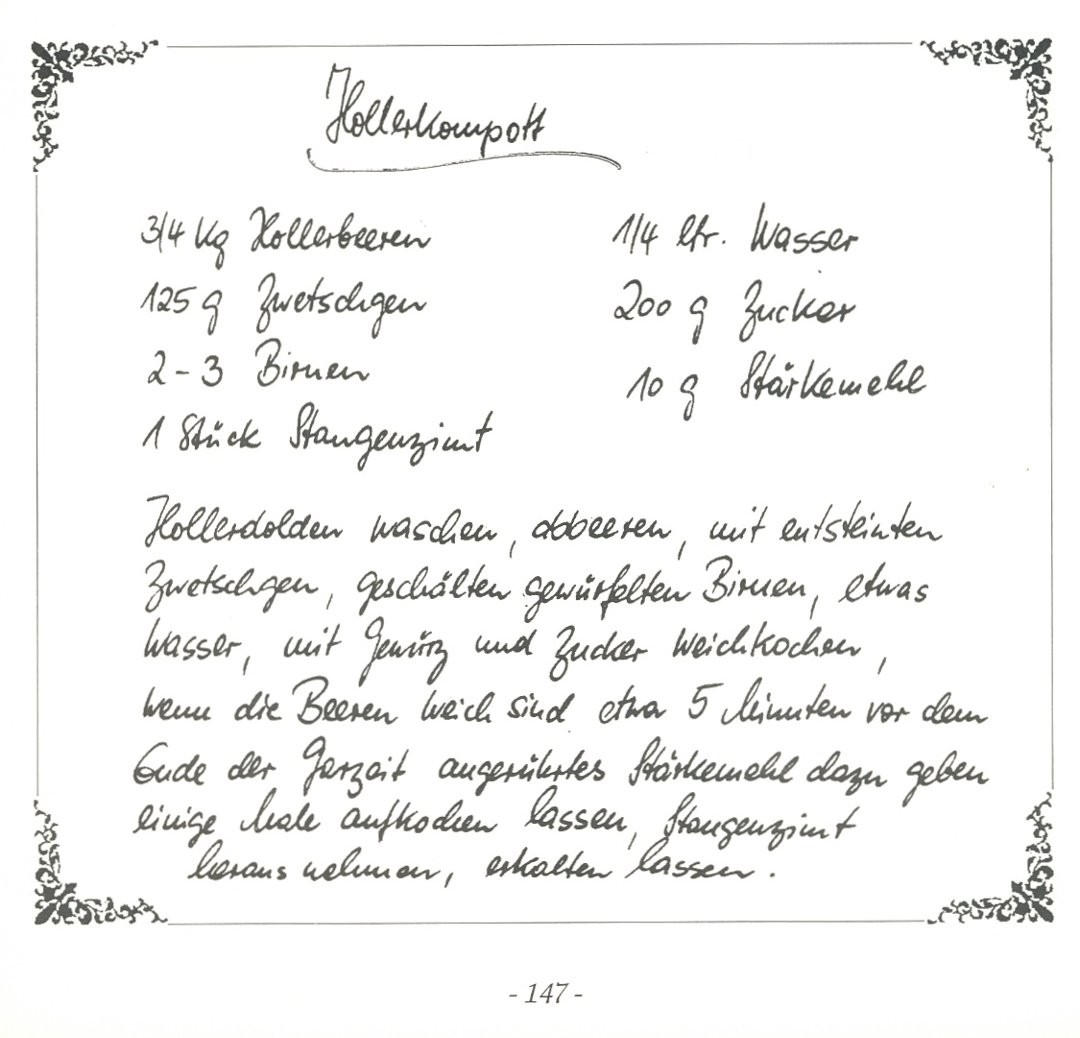 Hollerkompott
3/4 kg Hollerbeeren
125 g Zwetschgen
2-3 Birnen
1 Stück Stangenzimt
1/4 ltr. Wasser
200 g Zucker
10 g Stärkemehl
Hollerdolden waschen, abbeeren, mit entsteinten
Zwetschgen, geschälten gewürfelten Birnen, etwas
Wasser, mit Gewürz und Zucker weichkochen,
wenn die Beeren weich sind etwa 5 Minuten vor dem
Ende der Garzeit angerührtes Stärkemehl dazu geben
einige Male aufkochen lassen, Stangenzimt
heraus nehmen, erkalten lassen.
- 147 -